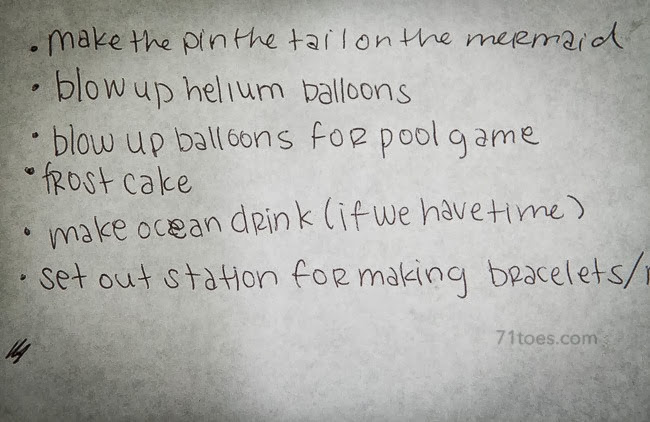 • make the pin the tail on the mermaid
• blow up helium balloons
• blow up balloons for pool game
• frost cake
• make ocean drink (if we have time)
• set out station for making bracelets/
71toes.com